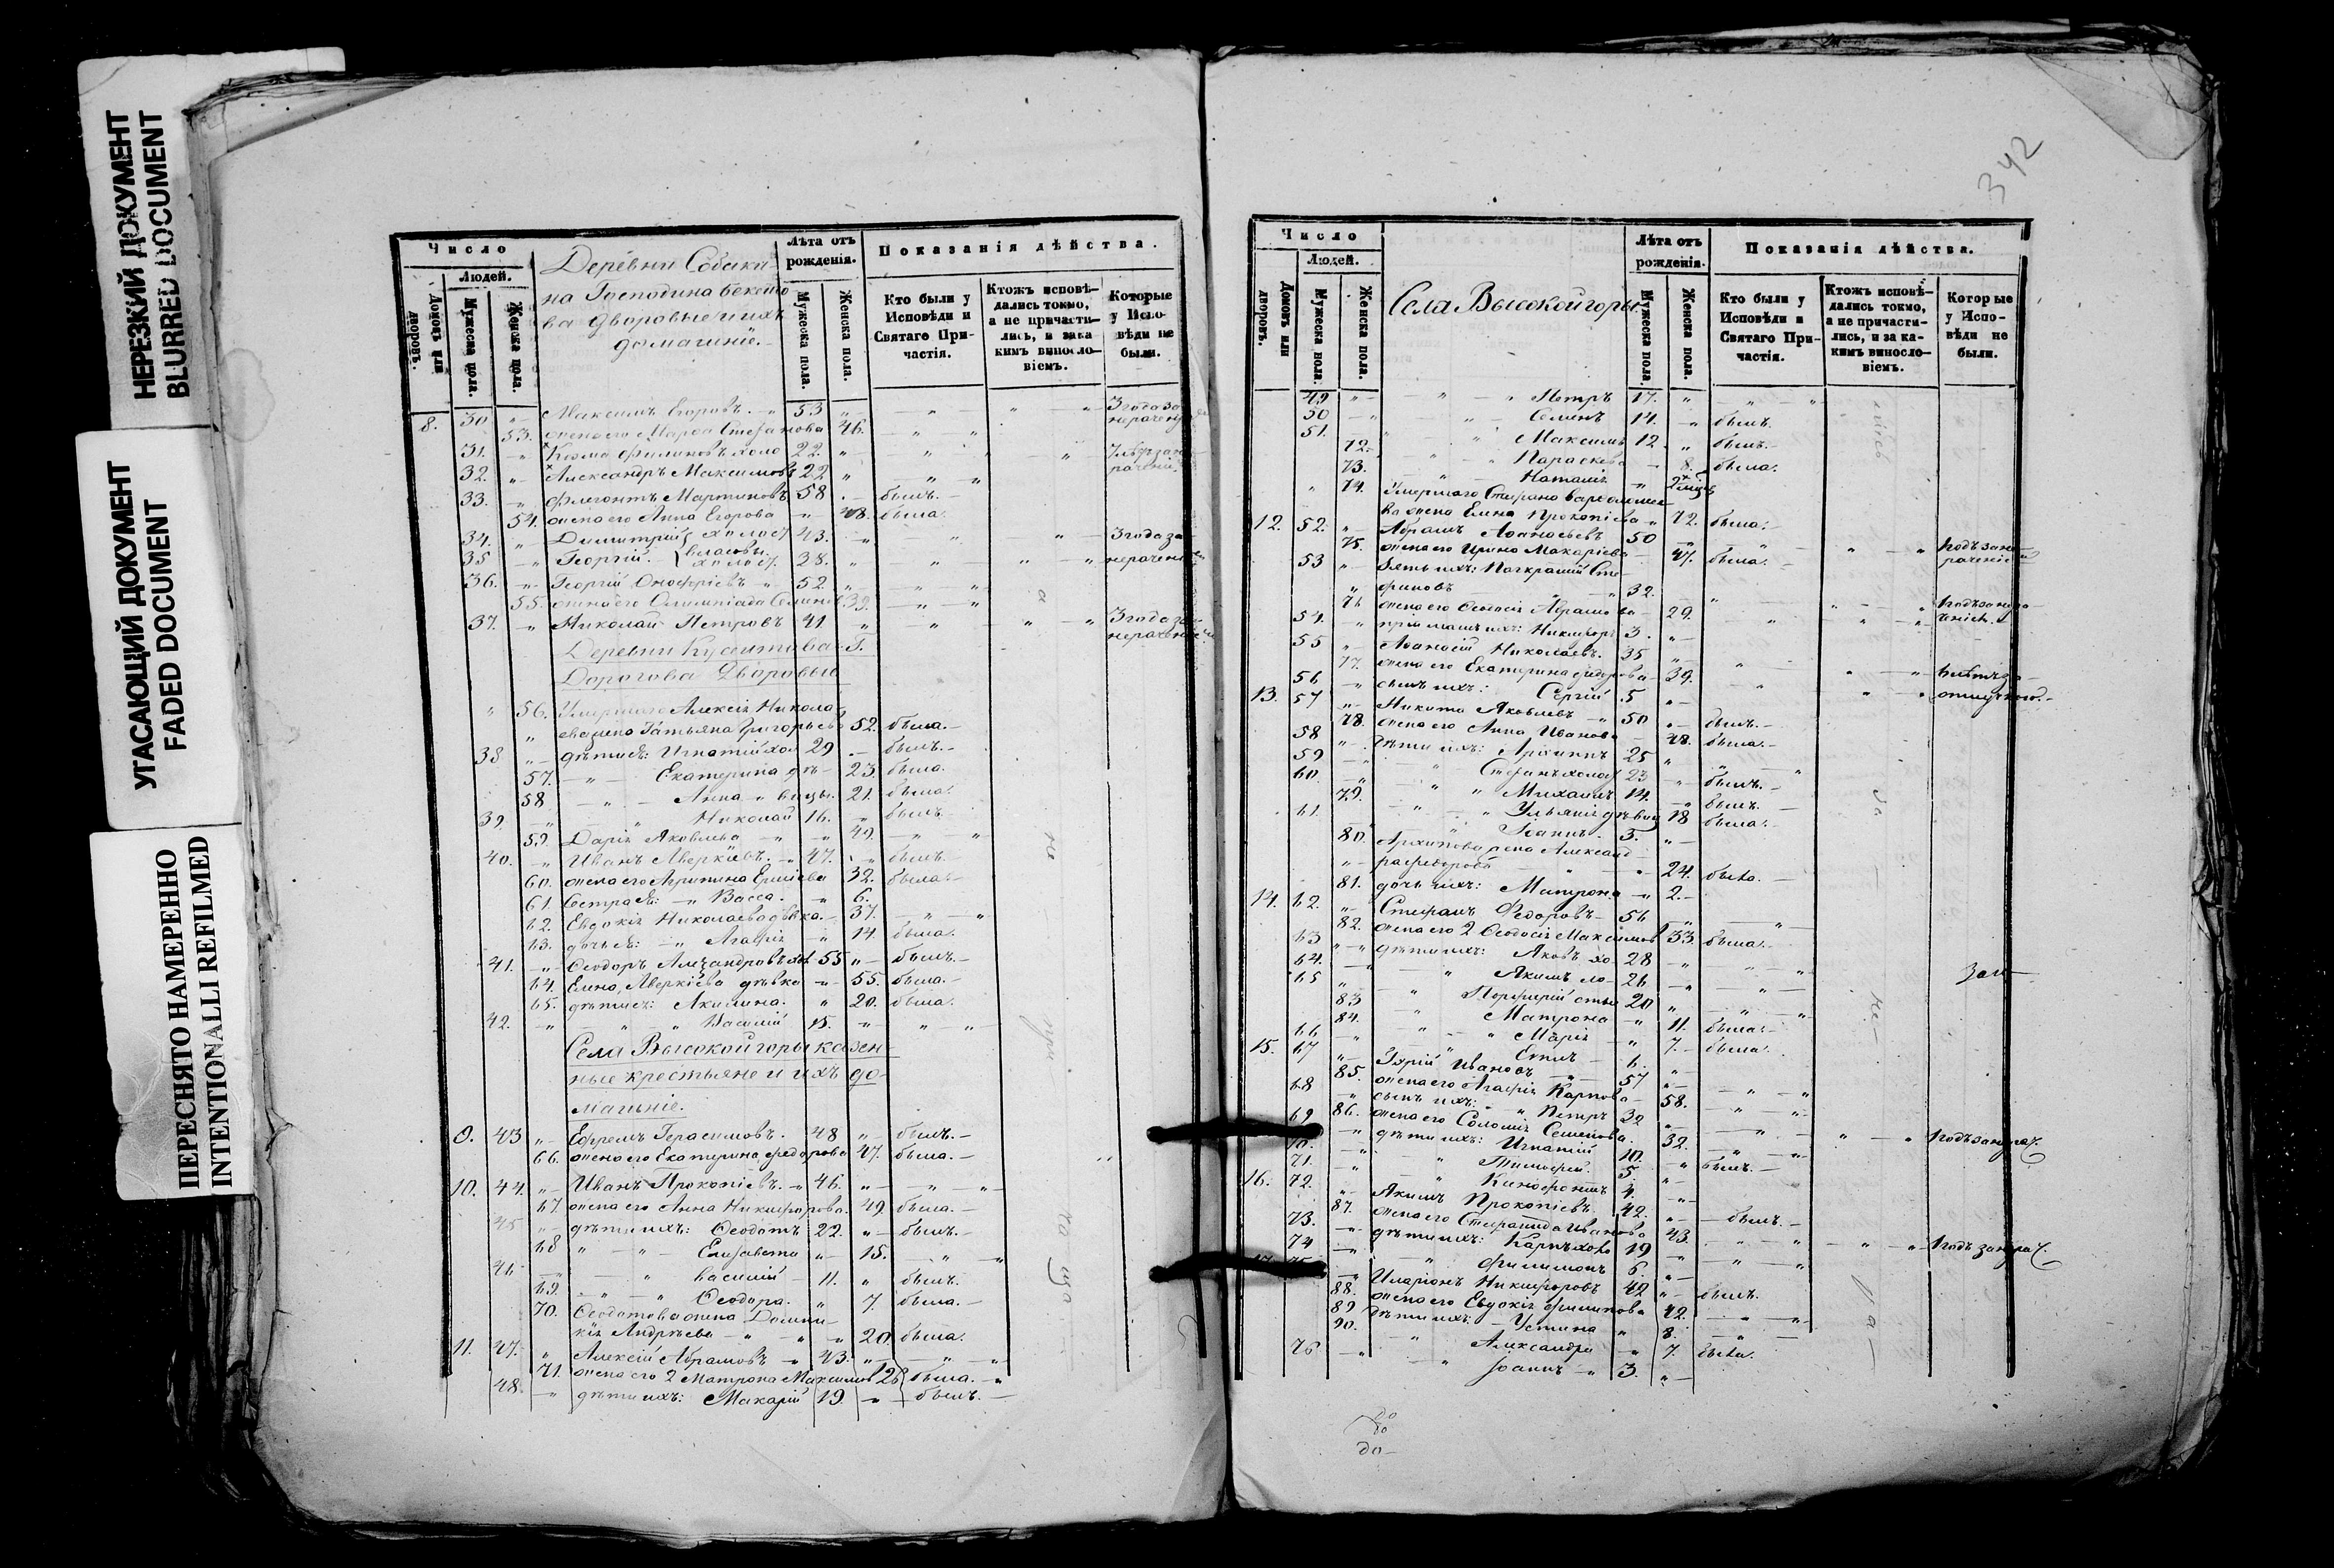 НЕРЕЗКИЙ ДОКУМЕНТ
BLURRED DOCUMENT
УГАСАЮЩИЙ ДОКУМЕНТ
FADED DOCUMENT
ПЕРЕСНЯТО НАМЕРЕННО
INTENTIONALLI REFILMED
Число
Людей.
Домовъ или дворовъ.
Мужеска пола.
Женска пола.
Деревни Собаки-
на Господина Бекето
ва дворовые и ихъ
домашніе.
Лѣта отъ рожденія.
Мужеска пола.
Женска пола.
Показанія дѣйства.
Кто были у Исповѣди и Святаго Причастія.
Ктожъ исповѣдались токмо, а не причастились, и за какимъ винословіемъ.
Которые у Исповѣди не были.
8. 30 Максимъ Егоровъ. 53 3 года за
53. жена его Марфа Стефанова 46. нерачен
31. Козма Филиповъ холо 22.
32. Александръ Максимовъ 22
33. Флегонтъ Мартиновъ 58 былъ.
54. жена его Анна Егорова 48. была.
34. Димитрій холос 43. 3 года за
35 Георгій. Власовы холос. 28. нерачен
36. Георгій Онофріевъ 52.
55. жена его Олимпіада Семенов 39.
37. Николай Петровъ 41 3 года за
нерачен
Деревни Куземетева Г.
Дорогова Дворовые
56. Умершаго Алексія Никола
ева жена Татьяна Григорьева 52. была.
38 дѣти ея: Игнатій хол 29 былъ.
57. Екатерина дѣ 23. была.
58 Анна вицы. 21. была.
39. Николай 16. былъ
59. Дарія Яковлева 49.
40. Иванъ Аверкіевъ. 47. былъ.
60. жена его Агрипина Ермиева 32. была
61 сестра ея: Васса. 6.
62. Евдокія Николаева дѣвка. 37.
63. дочь ея: Агафія 14. была.
41. Ѳеодоръ Александровъ хол 55 былъ.
64. Елена Аверкіева дѣвка 55. была.
65. дѣти ея: Акилина. 20. была.
42. Василій 15.
Села Высокой горы казен-
ные крестьяне и ихъ до-
машніе.
9. 43 Ефремъ Герасимовъ. 48 былъ.
66. жена его Екатерина Федорова 47. была.
10. 44. Иванъ Прокопіевъ. 46.
67 жена его Анна Никифорова. 49 была.
45 дѣти ихъ: Ѳеодотъ 22. былъ.
68 Елизавета 15.
46 Василій 11. былъ.
69. Ѳеодора. 7. была.
70. Ѳеодотова жена Домни-
кія Андреева 20. была.
11. 47. Алексій Абрамовъ 43.
71. жена его 2 Матрона Максимов 26 была.
48. дѣти ихъ: Макарій 19. былъ.
342
Число
Людей.
Домовъ или дворовъ.
Мужеска пола.
Женска пола.
Села Высокой горы.
Лѣта отъ рожденія.
Мужеска пола.
Женска пола.
Показанія дѣйства.
Кто были у Исповѣди и Святаго Причастія.
Ктожъ исповѣдались токмо, а не причастились, и за какимъ винословіемъ.
Которые у Исповѣди не были.
49 Петръ 17.
50 Семенъ 14. былъ.
51. Максимъ 12. былъ.
72. Параскева 8. была.
73. Наталія
74. Умершаго Стефана Варфоломее
ва жена Елена Прокопіева 72. была.
12. 52. Абрамъ Аѳанасьевъ 50
75. жена его Ирина Макаріева 47. была. 1 годъ за не
53 Зять ихъ: Панкратій Сте раченіе
фановъ 32.
76 жена его Ѳеодосія Абрамова 29. 1 годъ за нера
54. Никифоръ 3. ченіе
55 Аѳанасій Николаевъ. 35
77. жена его Екатерина Федорова 39.
56 сынъ ихъ: Сергій 5 отлучкою.
13. 57 Никита Яковлевъ 50 былъ.
78. жена его Анна Иванова 48. была.
58 дѣти ихъ: Архипъ 25
59 Стефанъ холос 23 былъ.
60. Михаилъ 14. былъ.
79. Ульянія дѣвиц 18 была.
61. Іоаннъ. 5.
80. Архипова жена Александ-
ра Федорова 24. была.
81. дочь ихъ: Матрона 2.
14. 62. Стефанъ Федоровъ 56
82. жена его 2 Ѳеодосія Максимов 33. была.
63 дѣти ихъ: Яковъ хо 28
64. Якимъ ло 26
65 Порфирій стые 20
83 Матрона 11. была.
84. Марія 7. была.
66 Емил 6.
15. 67 Юрій Ивановъ 57
85. жена его Агафія Карпова 58.
68 сынъ ихъ: Петръ 32
86. жена его Соломія Семенова. 32. 1 годъ за нерач.
69 дѣти ихъ: Игнатій 10. былъ.
70. Тимофей. 5.
71. Ксенофонтъ 4.
16. 72. Якимъ Прокопіевъ. 42. былъ.
87. жена его Стефанида Иванова 43.
73. дѣти ихъ: Карпъ холо 19 1 годъ за нерач.
74 Филимонъ 6.
17. 75 Иларіонъ Никифоровъ 42 былъ.
88. жена его Евдокія Филипова 42.
89 дѣти ихъ: Устина 8.
90. Александра 7. была.
76 Іоаннъ 3.
до-